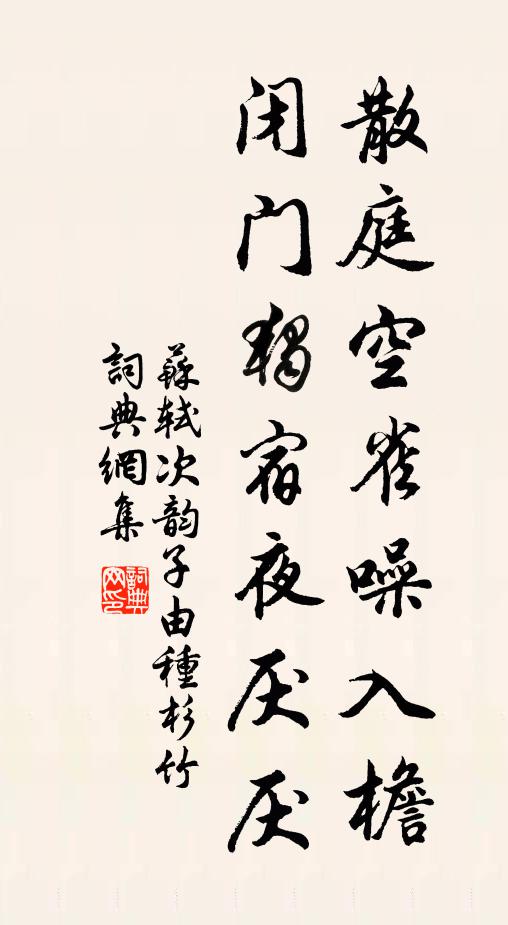 散庭空雀噪入檐
闭门独宿夜厌厌
蘇轼次韵子由種杉竹
詞典網集
詞典
网印